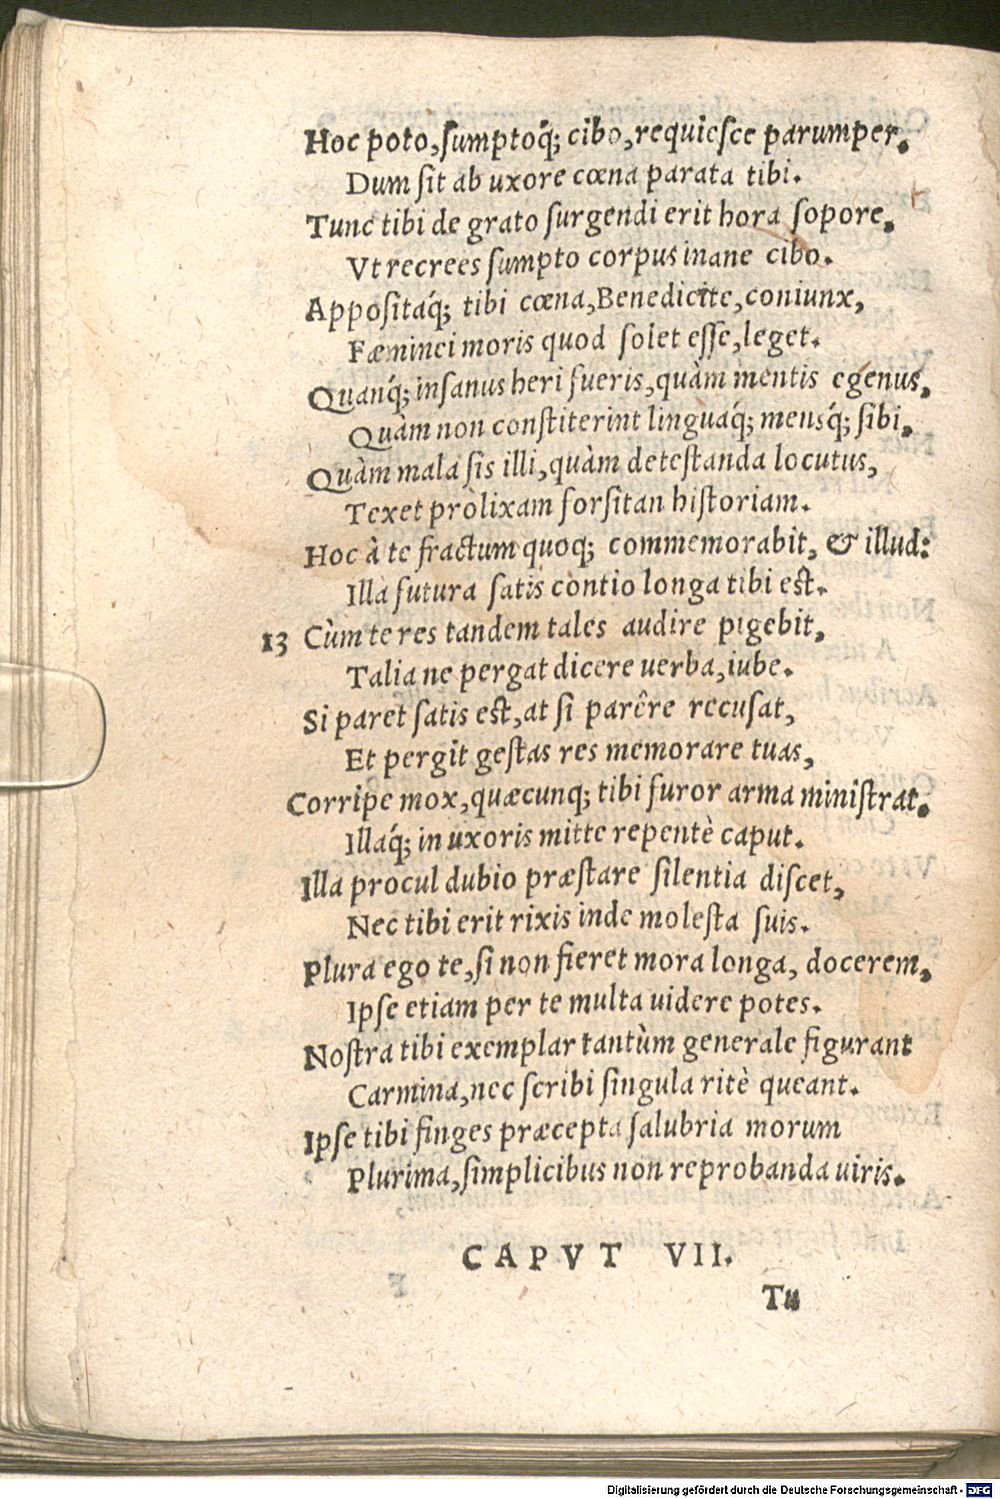 Hoc poto, ſumptoq́; cibo, requieſce parumper,
Dum ſit ab uxore cœna parata tibi.
Tunc tibi de grato ſurgendi erit hora ſopore,
Vt recrees ſumpto corpus inane cibo.
Appoſitaq́; tibi cœna, Benedicite, coniunx,
Fæminei moris quod ſolet eſſe, leget.
Quanq́; inſanus heri fueris, quàm mentis egenus,
Quàm non conſtiterint linguaq́; mensq́; ſibi,
Quàm mala ſis illi, quàm deteſtanda locutus,
Texet prolixam forſitan hiſtoriam.
Hoc à te fractum quoq; commemorabit, & illud:
Illa futura ſatis contio longa tibi eſt.
13 Cùm te res tandem tales audire pigebit,
Talia ne pergat dicere uerba, iube.
Si paret ſatis eſt, at ſi parêre recuſat,
Et pergit geſtas res memorare tuas,
Corripe mox, quæcunq; tibi furor arma miniſtrat,
Illaq́; in uxoris mitte repentè caput.
Illa procul dubio præſtare ſilentia diſcet,
Nec tibi erit rixis inde moleſta ſuis.
Plura ego te, ſi non fieret mora longa, docerem,
Ipſe etiam per te multa uidere potes.
Noſtra tibi exemplar tantùm generale figurant
Carmina, nec ſcribi ſingula ritè queant.
Ipſe tibi finges præcepta ſalubria morum
Plurima, ſimplicibus non reprobanda uiris.
CAPVT VII.
Tu
Digitalisierung gefördert durch die Deutsche Forschungsgemeinschaft - DFG